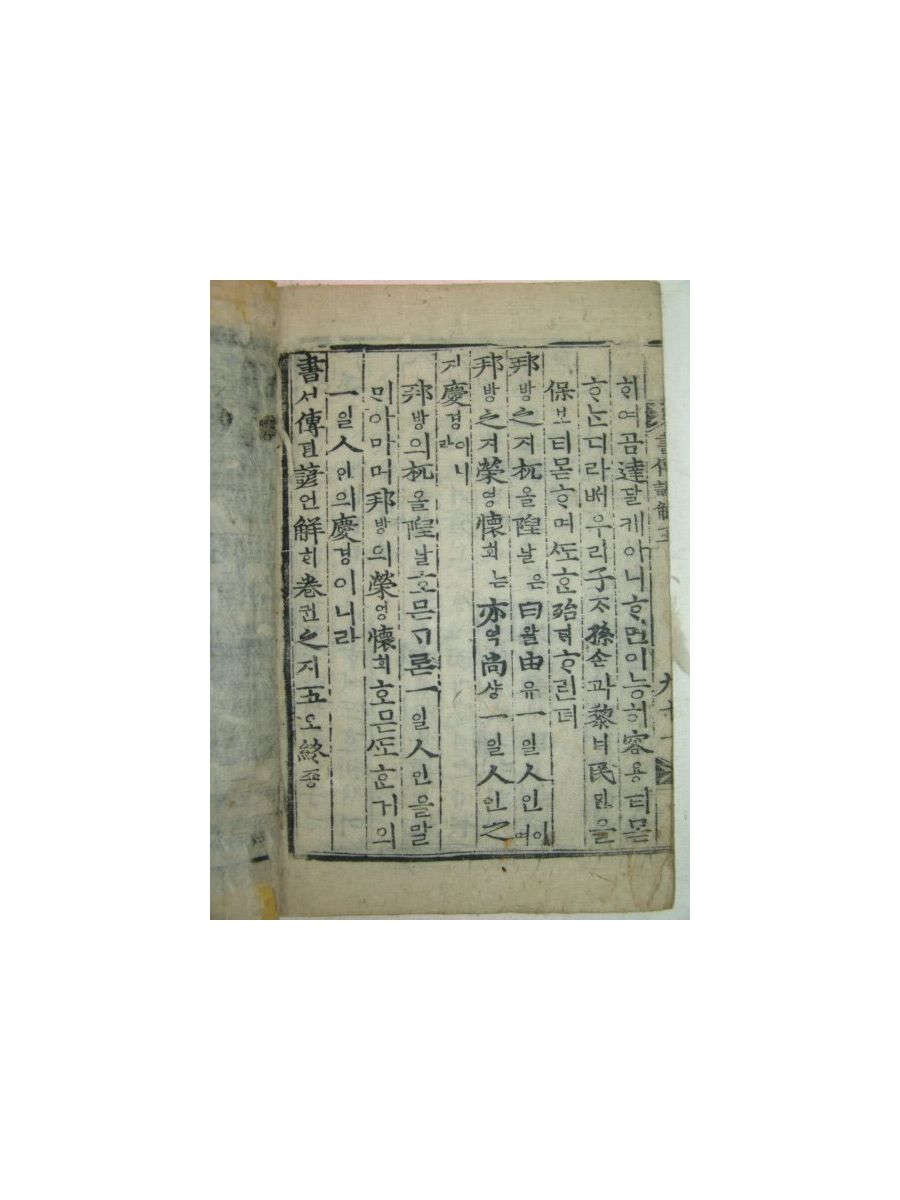 ᄒᆡ여곰達달케아니ᄒᆞ면이能히容용티몯
ᄒᆞᄂᆞᆫ디라ᄡᅥ우리子ᄌᆞ孫손과黎려民민을
保보티몯ᄒᆞ며ᄯᅩᄒᆞᆫ殆ᄐᆡᄒᆞ린뎌
邦방之지杌올隉날은曰왈由유一일人인이여
邦방之지榮영懷회는亦역尙샹一일人인之
지慶경이니라
邦방의杌올隉날호ᄆᆞᆫᄀᆞ론一일人인을말
ᄆᆡ아마며邦방의榮영懷회호ᄆᆞᆫᄯᅩᄒᆞᆫ거의
一일人인의慶경이니라
書셔傳뎐諺언解ᄒᆡ卷권之지五오終죵